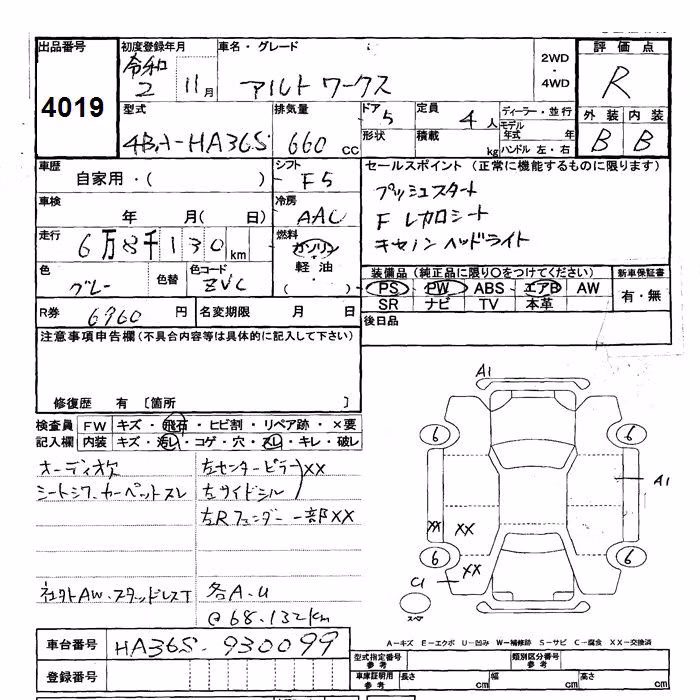 出品番号
4019
初度登録年月
令和
2 11月
車名・グレード
アルト ワークス
2WD
・
4WD
評価点
R
型式
4BA-HA36S
排気量
660 cc
ドア 5
形状
定員 4 人
積載 kg
ディーラー・並行
モデル
年式 年
ハンドル 左・右
外装 内装
B B
車歴
自家用・( )
シフト
F5
セールスポイント (正常に機能するものに限ります)
プッシュスタート
F レカロシート
キセノンヘッドライト
車検
年 月( 日)
冷房
AAC
走行
6万8千130km
燃料
ガソリン
軽油
( )
色
グレー
色替
色コード
ZVC
装備品 (純正品に限り○をつけてください)
PS PW ABS エアB AW
SR ナビ TV 本革
新車保証書
有・無
R券 6960 円
名変期限 月 日
後日品
注意事項申告欄(不具合内容等は具体的に記入して下さい)
修復歴 有 〔箇所 〕
検査員
記入欄
FW キズ・飛石・ヒビ割・リペア跡・×要
内装 キズ・汚レ・コゲ・穴・スレ・キレ・破レ
オーディオ欠
シートシワ・カーペットスレ
左センターピラー XX
左サイドシル
左Rフェンダー 一部XX
社外AW・スタッドレスT
各A・U
@68.132km
A1
6 6
A1
XX XX
6 6
XX
C1
スペア
A-キズ E-エクボ U-凹み W-補修跡 S-サビ C-腐食 XX-交換済
車台番号 HA36S-930099
登録番号
型式指定番号
参考
類別区分番号
参考
車庫証明用
参考
長さ cm
幅 cm
高さ cm